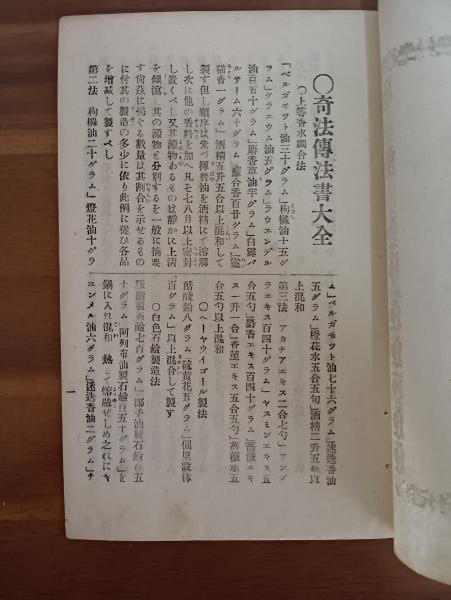 〇奇法傳法書大全
〇上等香水調合法
「ベルガモット油三十グラム」枸櫞油十五グ
ラム」ゲラニウム油五グラム」ラウエンデル
油百五十グラム」麝香草油半グラム」白露バ
ルサーム六十グラム」蘇合香百廿グラム」靈
猫香一グラム」酒精五升五合以上混和して
製す但し順序は先づ揮發油を酒精にて溶解
し次に他の香料を加へ凡そ七八月以上密封
し置くべし又其澱物あるものは靜かに上淸
を傾瀉し其の澱物と分別するを一般に摘要
す尙茲に揭ぐる數量は其割合を示せるもの
に付其の製造の多少に依り此例に從ひ各品
を增减して製すべし
第二法 枸櫞油二十グラム」燈花油十グラ
ム」ベルガモット油七十六グラム」迷迭香油
五グラム」橙花水五合五勺」酒精二升五合以
上混和
第三法 アカチアエキス二合七勺」アング
ラエキス百四十グラム」ヤスミンエキス五
合五勺」麝香エキス百四十グラム」薔薇エキ
ス一升一合」香菫エキス五合五勺」薔薇水五
合五勺以上混和
〇ヘーヤウイゴール製法
醋酸鉛八グラム」硫黃花五グラム」倔里設林
百グラム」以上混合して製す
〇白色石鹼製造法
豚脂製石鹼七百グラム」椰子油製石鹼百五
十グラム」阿列布油製石鹼百五十グラム」を
鍋に入れ混和 熱して熔融せしめ之れにキ
ユンメル油六グラム」迷迭香油二グラム」チ
一